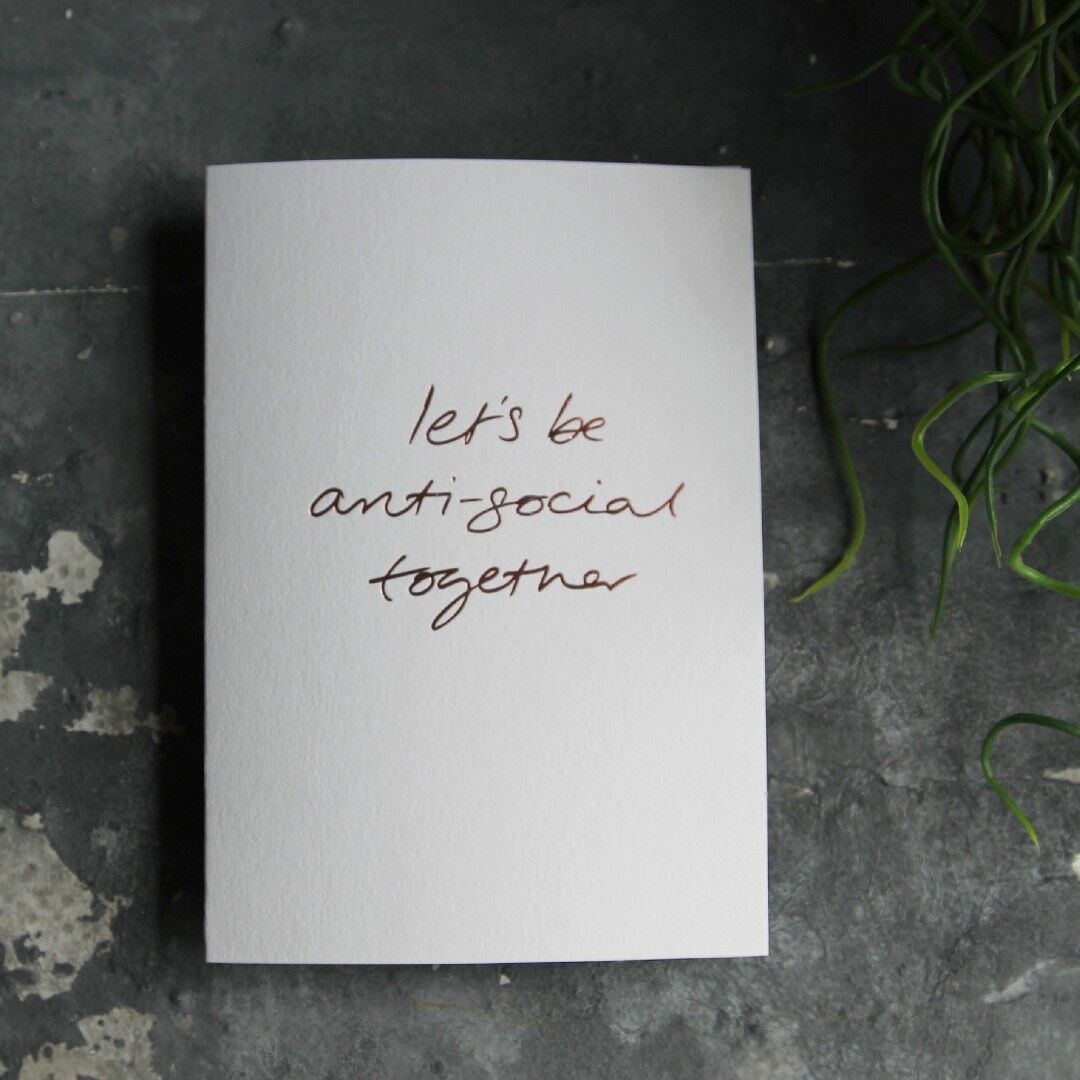 let's be
anti-social
together